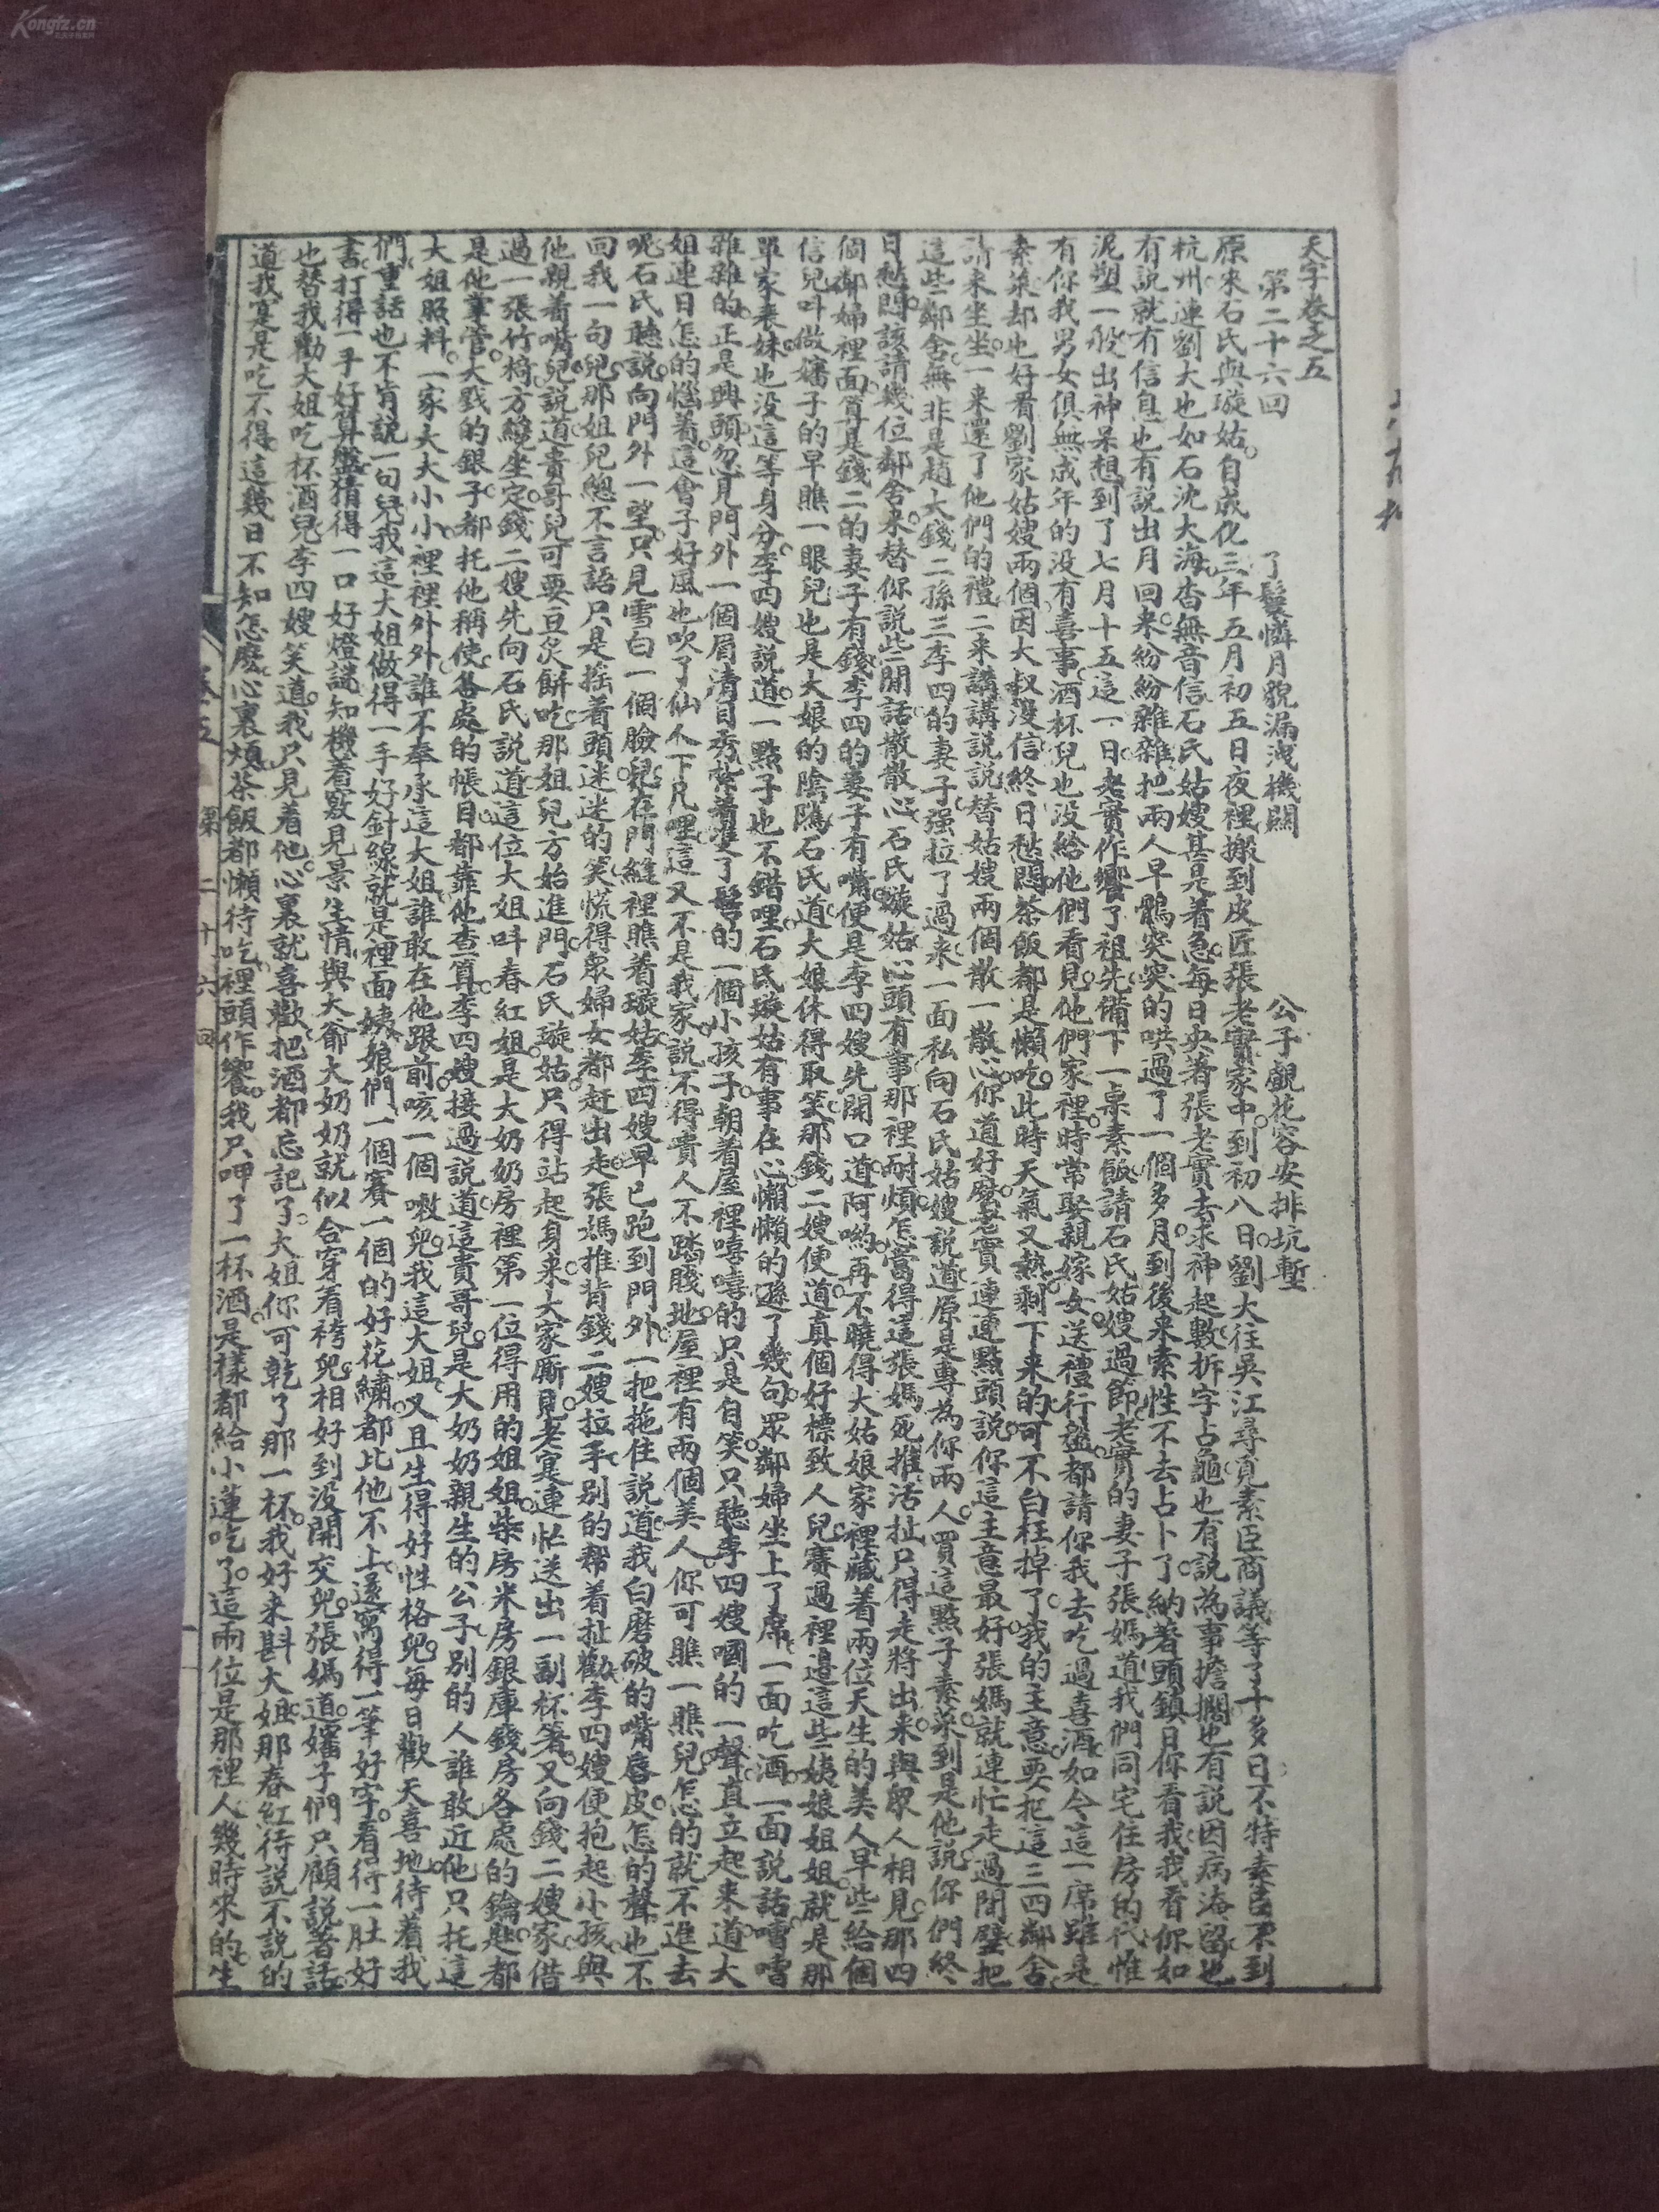 天字卷之五
第二十六回 了鬟憐月貌漏洩機關 公子覷花容安排坑塹
原來石氏與璇姑。自成化三年五月初五日夜裡搬到皮匠張老實家中。到初八日。劉大往吳江尋覓素臣商議等了十多日不特素臣不到
杭州連劉大也如石沈大海杳無音信石氏姑嫂甚是着急每日央著張老實去求神起數拆字占龜也有説為事擔擱也有説因病淹留也
有説就有信息也有説出月回來紛紛雜雜把兩人早鶻突突的哄過了一個多月。到後來索性不去占卜了納著頭鎮日你看我我看你如
泥塑一般出神呆想到了七月十五這一日老實作饗了祖先備下一桌素飯請石氏姑嫂過節老實的妻子張媽道我們同宅住房的代惟
有你我男女俱無成年的没有喜事酒杯兒也没給他們看見他們家裡時常娶親嫁女送禮行盤都請你我去吃過喜酒如今這一席雖是
素菜却也好看劉家姑嫂兩個因大叔没信終日愁悶茶飯都是懶吃此時天氣又熱剩下来的可不白枉掉了我的主意要把這三四鄰舍
請来坐坐一来還了他們的禮二来講講説説替姑嫂兩個散一散心你道好麽老實連連點頭説你這主意最好張媽就連忙走過間壁把
這些鄰舍無非是趙大錢二孫三李四的妻子强拉了過来一面私向石氏姑嫂説道原是專為你兩人買這點子素菜到是他説你們終
日愁悶該請幾位鄰舍来替你説些閒話散散心石氏璇姑心頭有事那裡耐煩怎當得這張媽死推活扯只得走將出来與衆人相見那四
個鄰婦裡面算是錢二的妻子有錢李四的妻子有嘴便是李四嫂先開口道阿喲再不曉得大姑娘家裡藏着兩位天生的美人早些給個
信兒呌做嬸子的早瞧一眼兒也是大娘的陰騭石氏道大娘休得取笑那錢二嫂便道真個好標致人兒賽過裡邉這些姨娘姐姐就是那
單家表妹也没這等身分李四嫂説道一點子也不錯哩石氏璇姑有事在心懶懶的遜了幾句眾鄰婦坐上了席一面吃酒一面説話嘈嘈
雜雜的正是興頭忽見門外一個眉清目秀紮着雙了髻的一個小孩子朝着屋裡嘻嘻的只是自笑只聽李四嫂嘓的一聲直立起来道大
姐連日怎的惱着這會子好風也吹了仙人下凡哩這又不是我家説不得貴人不踏賤地屋裡有兩個美人你可瞧一瞧兒怎的就不進去
呢石氏聽説向門外一望只見雪白一個臉兒在門縫裡瞧着璇姑李四嫂早已跑到門外一把拖住説道我白磨破的嘴唇皮怎的聲也不
回我一句兒那姐兒總不言語只是摇着頭迷迷的笑慌得眾婦女都赶出走張媽推背錢二嫂拉手别的帮着扯勸李四嫂便抱起小孩與
他親着嘴兒説道貴哥兒可要豆炙餅吃那姐兒方始進門石氏璇姑只得站起身来大家厮見老實連忙送出一副杯箸又向錢二嫂家借
過一張竹椅方纔坐定錢二嫂先向石氏説道這位大姐呌春紅姐是大奶奶房裡第一位得用的姐姐柴房米房銀庫錢房各處的鑰匙都
是他掌管大戥的銀子都托他稱使各處的帳目都靠他查算李四嫂接過説道這貴哥兒是大奶奶親生的公子别的人誰敢近他只托這
大姐照料一家大大小小裡裡外外誰不奉承這大姐誰敢在他跟前咳一個嗽兒我這大姐又且生得好性格兒每日歡天喜地待着我
們重話也不肯説一句兒我這大姐做得一手好針線就是裡面姨娘們一個賽一個的好花繡都比他不上還寫得一筆好字看得一肚好
書打得一手好算盤猜得一口好燈謎知機着竅見景生情與大爺大奶奶就似合穿着袴兒相好到没開交兒張媽道嬸子們只顧説著話
也替我勸大姐吃杯酒兒李四嫂笑道我只見着他心裏就喜歡把酒都忘記了大姐你可乾了那一杯我好来斟大姐那春紅待説不説的
道我實是吃不得這幾日不知怎麽心裏煩茶飯都懶待吃裡頭作饗我只呷了一杯酒是樣都給小蓮吃了這兩位是那裡人幾時來的生
卷五 第二十六回